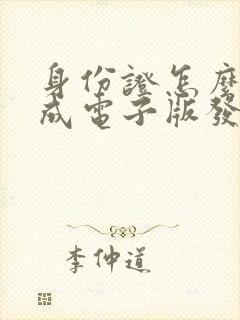 身份證怎麼
成電子版發
李仲道